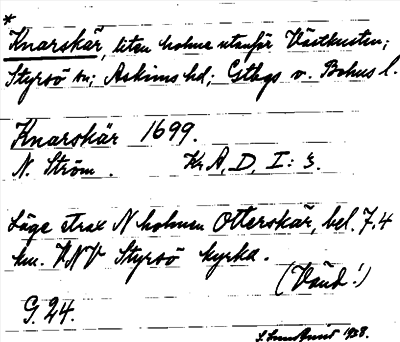 *
Knarskär, liten holme utanför Västkusten;
Styrsö sn; Askims hd; Gtbgs o. Bohus l.
Knarskär 1699.
N. Ström. Kr.A, D, I: 3.
Läge strax N holmen Otterskär, bel. 7.4
km. VNV Styrsö kyrka.
(Vänd!)
G. 24.
1938.